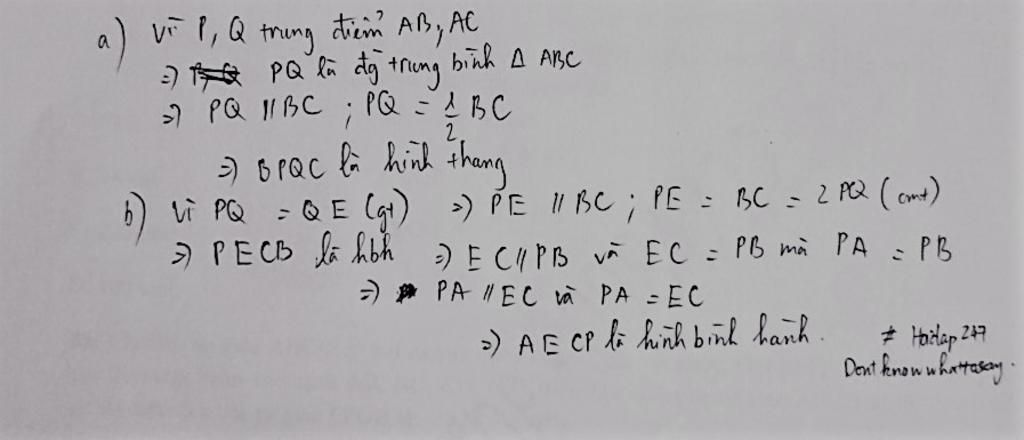 a) Vì P, Q trung điểm AB, AC
=> PQ là đg trung bình Δ ABC
=> PQ // BC ; PQ = 1/2 BC
=> BPQC là hình thang
b) Vì PQ = QE (gt) => PE // BC ; PE = BC = 2 PQ (cmt)
=> PECB là hbh => EC // PB và EC = PB mà PA = PB
=> PA // EC và PA = EC
=> AECP là hình bình hành.
# Hoidap 247
Dont know whattosay.